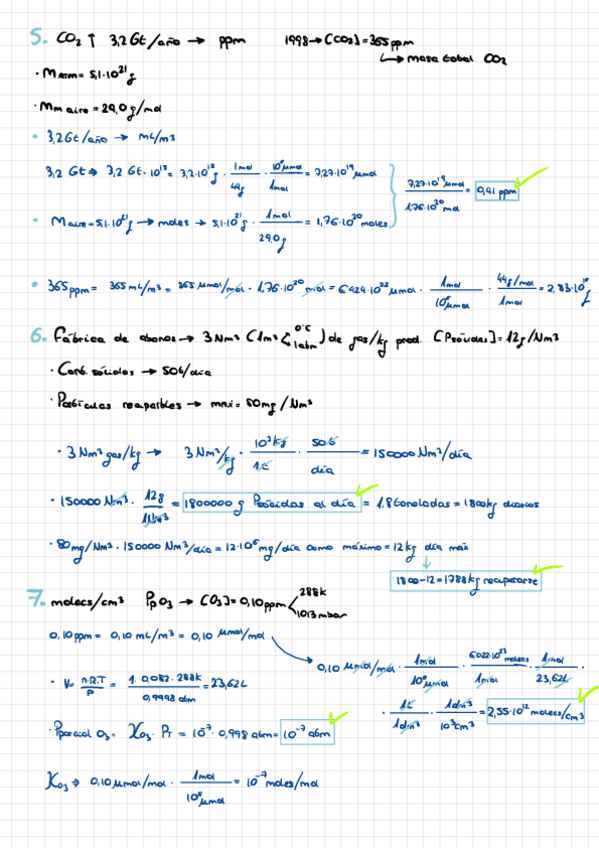 5. CO₂ ↑ 3,2 Gt/año → ppm 1998 → [CO2] = 365 ppm
↳ masa total CO₂
· MATM = 5,1·10²¹ g
· Mm aire = 29,0 g/mol
• 3,2 Gt/año → mL/m³
3,2 Gt → 3,2 Gt·10¹⁵ = 3,2·10¹⁵ g · 1mol/44g · 10⁶ μmol/1mol = 7,27·10¹⁹ μmol
7,27·10¹⁹ μmol/1,76·10²⁰ mol = 0,41 ppm
• Maire = 5,1·10²¹ → moles → 5,1·10²¹ g · 1mol/29,0g = 1,76·10²⁰ moles
• 365 ppm = 365 mL/m³ = 365 μmol/mol · 1,76·10²⁰ mol = 6,424·10²² μmol · 1mol/10⁶ μmol · 44g/mol/1mol = 2,83·10¹⁸ g
6. Fábrica de abonos → 3 Nm³ (1m³ < 0°C 1atm) de gas/kg prod. [Psólidas] = 12g/Nm³
· Cant. sólidos → 50t/día
· Partículas recuperables → max = 80mg/Nm³
· 3 Nm³ gas/kg → 3 Nm³/kg · 10³ kg/1t · 50t/día = 150000 Nm³/día
· 150000 Nm³ · 12g/1Nm³ = 1800000 g Psólidas al día = 1.8 toneladas = 1800kg diarios
· 80mg/Nm³ · 150000 Nm³/día = 12·10⁶ mg/día como máximo = 12kg día max
↓
1800-12 = 1788 kg recuperarse
7. molecs/cm³ Pp O₃ → [O3] = 0,10 ppm < 288K 1013mbar
0,10 ppm = 0,10 mL/m³ = 0,10 μmol/mol
0,10 μmol/mol · 1mol/10⁶ μmol · 6,022·10²³ molecs/1mol · 1mol/23,62L ·
· V = n·R·T/P = 1·0,082·288K/0,9998 atm = 23,62L
· 1L/1dm³ · 1dm³/10³cm³ = 2,55·10¹² molecs/cm³
· Pparcial O₃ = XO₃ · PT = 10⁻⁷ · 0,998 atm = 10⁻⁷ atm
XO₃ → 0,10 μmol/mol · 1mol/10⁶ μmol = 10⁻⁷ moles/mol